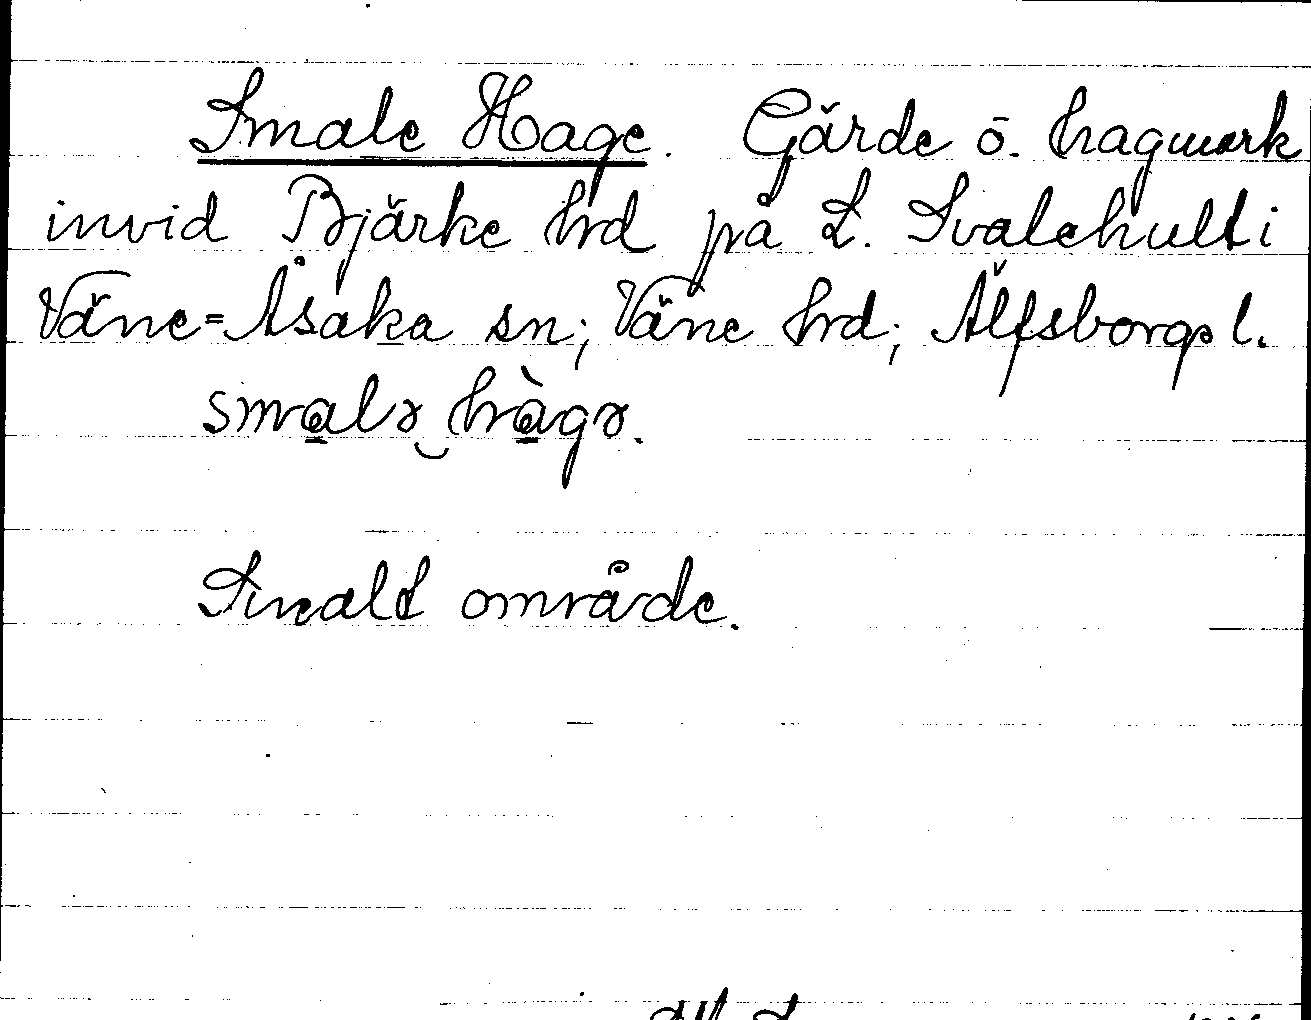 Smale Hage. Gärde o. hagmark
invid Bjärke hrd på L. Svalehult i
Väne=Åsaka sn; Väne hrd; Älfsborgs l.
smalɤ‿hàgɤ.
Smalt område.